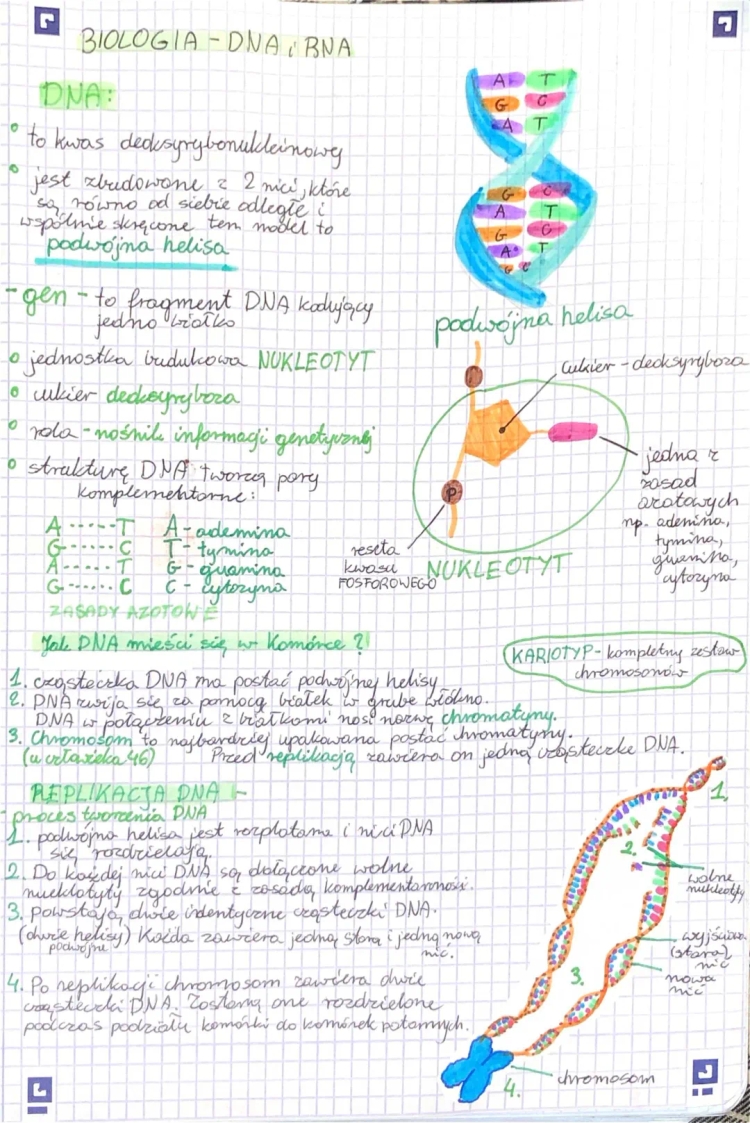 BIOLOGIA - DNA i RNA
DNA:
to kwas deoksyrybonukleinowy
jest zbudowane z 2 nici, które
są równo od siebie odległe i
wspólnie skręcone ten model to
podwójna helisa
- gen - to fragment DNA kodujący
jedno białko
jednostka budukowa NUKLEOTYT
cukier deoksyryboza
rola - nośnik informacji genetycznej
strukturę DNA tworzą pary
komplementarne:
A ------ T A - adenina
G ------ C T - tymina
A ------ T G - guanina
G ------ C C - cytozyna
ZASADY AZOTOWE
A T
G C
A T
G C
A T
G C
A T
G C
podwójna helisa
cukier - deoksyryboza
P
jedna z
zasad
azotowych
np. adenina,
tymina,
guanina,
cytozyna
reszta
kwasu
FOSFOROWEGO
NUKLEOTYT
Jak DNA mieści się w Komórce?
KARIOTYP - kompletny zestaw
chromosonów
1. cząsteczka DNA ma postać podwójnej helisy
2. DNA zwija się za pomocą białek w grube włókno.
DNA w połączeniu z białkami nosi nazwę chromatyny.
3. Chromosom to najbardziej upakowana postać chromatyny.
(u człowieka 46) Przed replikacją zawiera on jedną cząsteczkę DNA.
REPLIKACJA DNA -
- proces tworzenia DNA
1. podwójna helisa jest rozplatana i nici DNA
się rozdzielają.
2. Do każdej nici DNA są dołączone wolne
nuklotyty zgodnie z zasadą komplementarności.
3. Powstają dwie indentyczne cząsteczki DNA.
(dwie helisy) Każda zawiera jedną starą i jedną nową
podwójne nić.
4. Po replikacji chromosom zawiera dwie
cząsteczki DNA. Zostaną one rozdzielone
podczas podziału komórki do komórek potomnych.
1.
2.
wolne
nukleotyty
wyjściowa
(stara)
nić
nowa
nić
3.
4.
chromosom